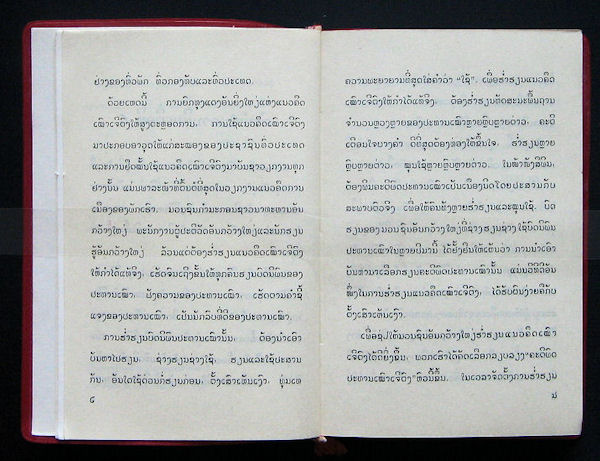 ຢ່າງຂອງທົ່ວພັກ ທົ່ວກອງທັບແລະທົ່ວປະເທດ.
ດ້ວຍເຫດນີ້ ການຍົກທຸງແດງອັນຍິ່ງໃຫຍ່ແຫ່ງແນວຄຶດ
ເໝົາເຈີຕົງໃຫ້ສູງຕະຫຼອດການ, ການໃຊ້ແນວຄຶດເໝົາເຈີຕົງ
ມາປະກອບອາວຸດໃຫ້ແກ່ສະໝອງຂອງປະຊາຊົນທົ່ວປະເທດ
ແລະການຢຶດໝັ້ນໃຊ້ແນວຄຶດເໝົາເຈີຕົງມາບັນຊາວຽກງານທຸກ
ຢ່າງນັ້ນ ແມ່ນພາລະໜ້າທີ່ຕົ້ນຕໍທີ່ສຸດໃນວຽກງານແນວຄຶດການ
ເມືອງຂອງພັກເຮົາ. ມວນຊົນກຳມະກອນຊາວນາທະຫານອັນ
ກວ້າງໃຫຍ່ ພະນັກງານປະຕິວັດອັນກວ້າງໃຫຍ່ແລະນັກຮຽນ
ຮູ້ອັນກວ້າງໃຫຍ່ ລ້ວນແຕ່ຕ້ອງຮ່ຳຮຽນແນວຄຶດເໝົາເຈີຕົງ
ໃຫ້ກຳໄດ້ແທ້ຈິງ, ເຮັດຈົນເຖິງຂັ້ນໃຫ້ທຸກຄົນຮຽນບົດນິພົນຂອງ
ປະທານເໝົາ, ຟັງຄວາມຂອງປະທານເໝົາ, ເຮັດຕາມຄຳຊີ້
ແຈງຂອງປະທານເໝົາ, ເປັນນັກຮົບທີ່ດີຂອງປະທານເໝົາ.
ການຮ່ຳຮຽນບົດນິພົນປະທານເໝົານັ້ນ, ຕ້ອງນຳເອົາ
ບັນຫາໄປຮຽນ, ຊ່າງຮຽນຊ່າງໃຊ້, ຮຽນແລະໃຊ້ປະສານ
ກັນ, ອັນໃດໃຊ້ດ່ວນກໍ່ຮຽນກ່ອນ, ຕັ້ງເສົາເຫັນເງົາ, ທຸ່ມເທ
໒
ຄວາມພະຍາຍາມທີ່ສຸດໃສ່ຄຳວ່າ “ໃຊ້”. ເພື່ອຮ່ຳຮຽນແນວຄຶດ
ເໝົາເຈີຕົງໃຫ້ກຳໄດ້ແທ້ຈິງ, ຕ້ອງຮ່ຳຮຽນທັດສະນະພື້ນຖານ
ຈຳນວນຫຼວງຫຼາຍຂອງປະທານເໝົາຫຼາຍຫຼົບຫຼາຍຕ່າວ. ຄະຕິ
ເຕືອນໃຈບາງຄຳ ດີທີ່ສຸດຕ້ອງທ່ອງໃຫ້ຂຶ້ນໃຈ, ຮ່ຳຮຽນຫຼາຍ
ຫຼົບຫຼາຍຕ່າວ, ໝູນໃຊ້ຫຼາຍຫຼົບຫຼາຍຕ່າວ. ໃນໜ້າໜັງສືພິມ,
ຕ້ອງພິມຄະຕິພົດປະທານເໝົາເປັນເນືອງນິດໂດຍປະສານກັບ
ສະພາບຕົວຈິງ ເພື່ອໃຫ້ຄົນທັງຫຼາຍຮ່ຳຮຽນແລະໝູນໃຊ້. ບົດ
ຮຽນຂອງມວນຊົນອັນກວ້າງໃຫຍ່ທີ່ຊ່າງຮຽນຊ່າງໃຊ້ບົດນິພົນ
ປະທານເໝົາໃນຫຼາຍປີມານີ້ ໄດ້ຢັ້ງຢືນໃຫ້ເຫັນວ່າ ການນຳເອົາ
ບັນຫາມາເລືອກຮຽນຄະຕິພົດປະທານເໝົານັ້ນ ແມ່ນວິທີດີອັນ
ໜຶ່ງໃນການຮ່ຳຮຽນແນວຄຶດເໝົາເຈີຕົງ, ໄດ້ຮັບຜົນງ່າຍຄືກັບ
ຕັ້ງເສົາເຫັນເງົາ.
ເພື່ອຊ່ວຍໃຫ້ມວນຊົນອັນກວ້າງໃຫຍ່ຮ່ຳຮຽນແນວຄຶດເໝົາ
ເຈີຕົງໄດ້ດີຍິ່ງຂຶ້ນ, ພວກເຮົາໄດ້ຄັດເລືອກລຽບລຽງ“ຄະຕິພົດ
ປະທານເໝົາເຈີຕົງ”ຫົວນີ້ຂຶ້ນ. ໃນເວລາຈັດຕັ້ງການຮ່ຳຮຽນ